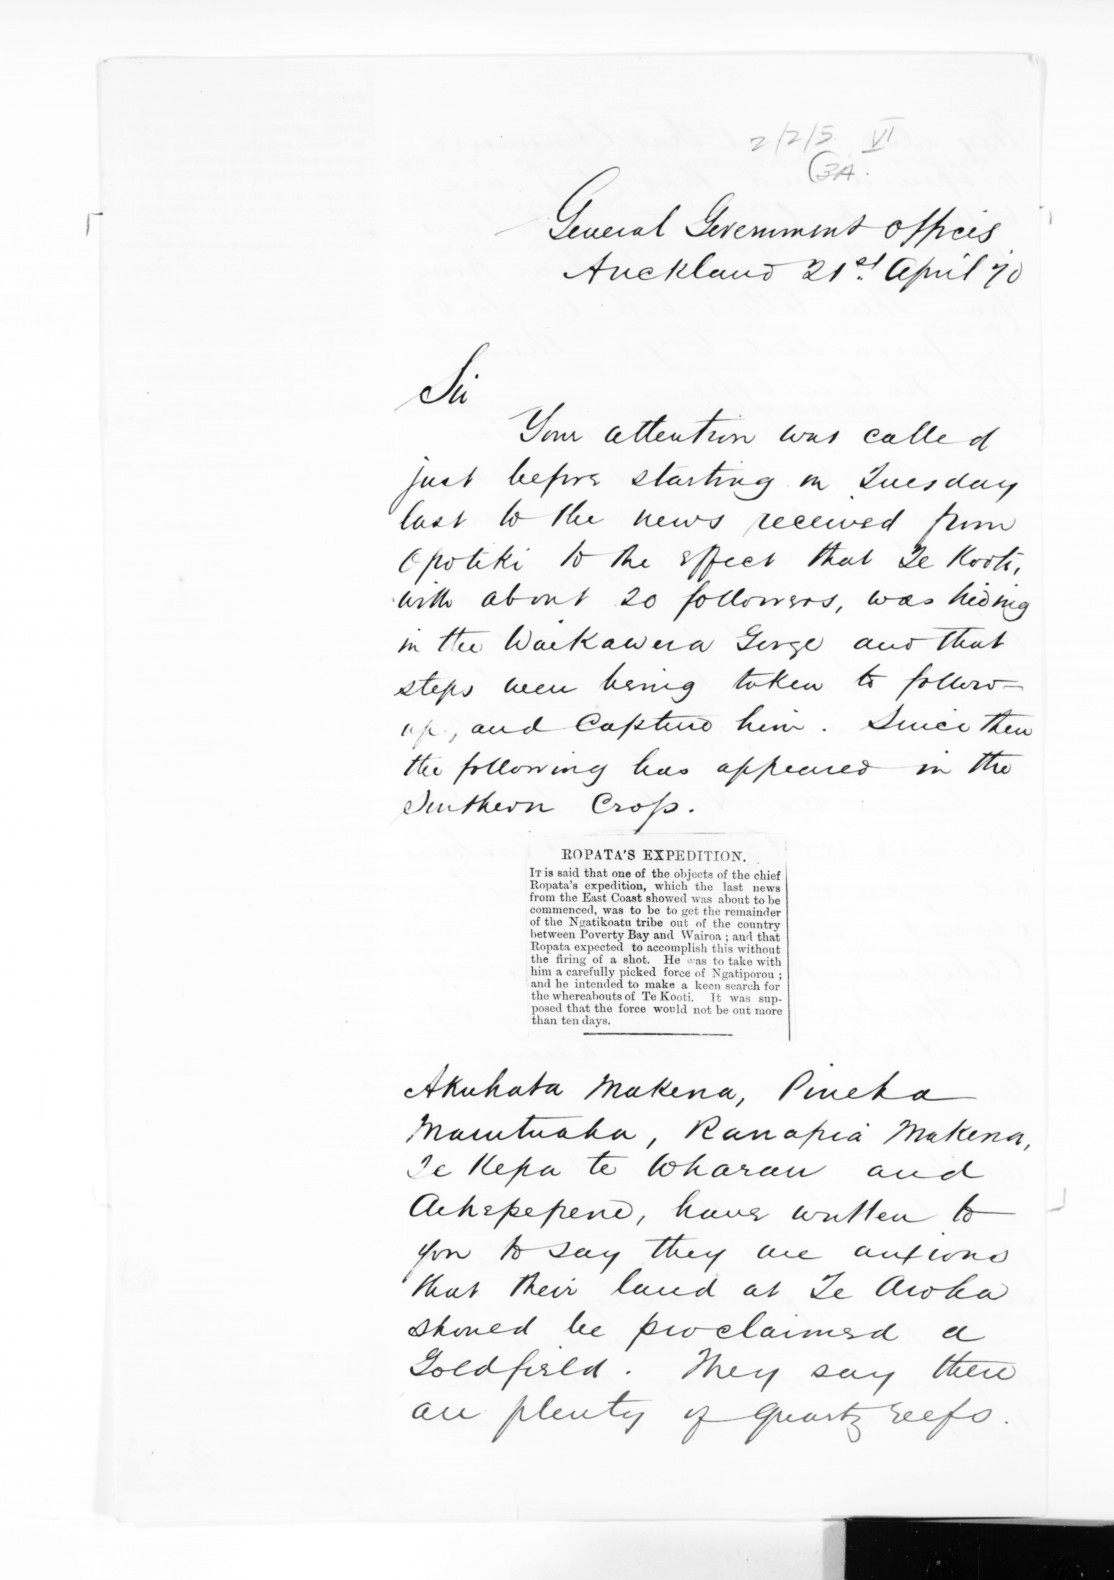 2/2/5. VI
3A.
General Government Offices
Auckland 21st April 70
Sir
Your attention was called
just before starting on Tuesday
last to the news received from
Opotiki to the effect that Te Kooti,
with about 20 followers, was hiding
in the Waikawera Gorge and that
steps were being taken to follow
up, and Capture him. Since then
the following has appeared in the
Southern Cross.
ROPATA'S EXPEDITION.
IT is said that one of the objects of the chief
Ropata's expedition, which the last news
from the East Coast showed was about to be
commenced, was to be to get the remainder
of the Ngatikoatu tribe out of the country
between Poverty Bay and Wairoa; and that
Ropata expected to accomplish this without
the firing of a shot. He was to take with
him a carefully picked force of Ngatiporou;
and he intended to make a keen search for
the whereabouts of Te Kooti. It was sup-
posed that the force would not be out more
than ten days.
Akuhata Makena, Pineha
Marutuaha, Ranapia Makena,
Te Kepa te Wharau and
have written to
you to say they are anxious
that their land at Te Aroha
should be proclaimed a
Goldfield. They say there
are plenty of quartz reefs.